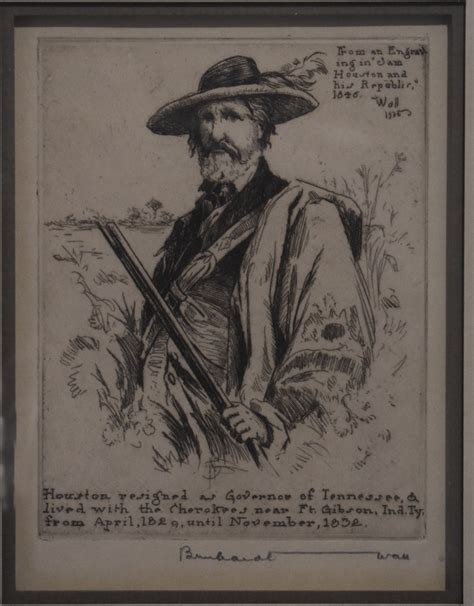 From an Engrav-
ing in "Sam
Houston and
his Republic,"
1846.
Wall
Houston resigned as Governor of Tennessee, &
lived with the Cherokees near Ft. Gibson, Ind. Ty.
from April, 1829, until November, 1832.
Bernhardt Wall